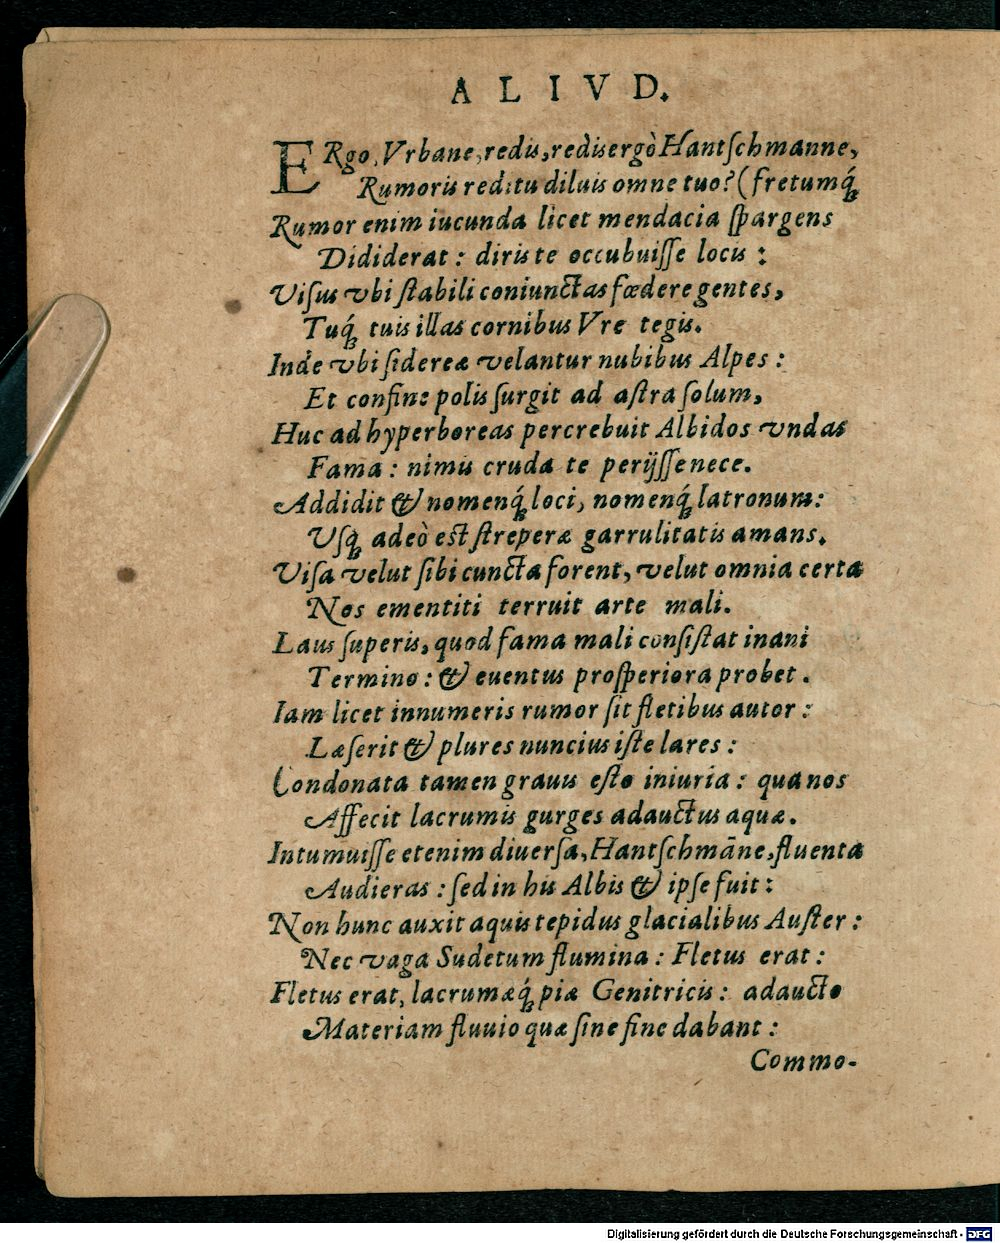 ALIVD.
ERgo, Vrbane, redis, redis ergò Hantſchmanne,
Rumoris reditu diluis omne tuo? (fretumq́;
Rumor enim iucunda licet mendacia ſpargens
Dididerat: diris te occubuiſſe locis:
Viſus vbi ſtabili coniunctas fœdere gentes,
Tuq́; tuis illas cornibus Vre tegis.
Inde vbi ſidereæ velantur nubibus Alpes:
Et confine polis ſurgit ad aſtra ſolum,
Huc ad hyperboreas percrebuit Albidos vndas
Fama: nimis cruda te perijſſe nece.
Addidit & nomenq́; loci, nomenq́; latronum:
Vſq́; adeò eſt ſtreperæ garrulitatis amans.
Viſa velut ſibi cuncta forent, velut omnia certa
Nos ementiti terruit arte mali.
Laus ſuperis, quod fama mali conſiſtat inani
Termino: & euentus proſperiora probet.
Iam licet innumeris rumor ſit fletibus autor:
Læſerit & plures nuncius iſte lares:
Condonata tamen grauis eſto iniuria: qua nos
Affecit lacrumis gurges adauctus aquæ.
Intumuiſſe etenim diuerſa, Hantſchmāne, fluenta
Audieras: ſed in his Albis & ipſe fuit:
Non hunc auxit aquis tepidus glacialibus Auſter:
Nec vaga Sudetum flumina: Fletus erat:
Fletus erat, lacrumæq́; piæ Genitricis: adaucto
Materiam fluuio quæ ſine fine dabant:
Commo-
Digitalisierung gefördert durch die Deutsche Forschungsgemeinschaft - DFG